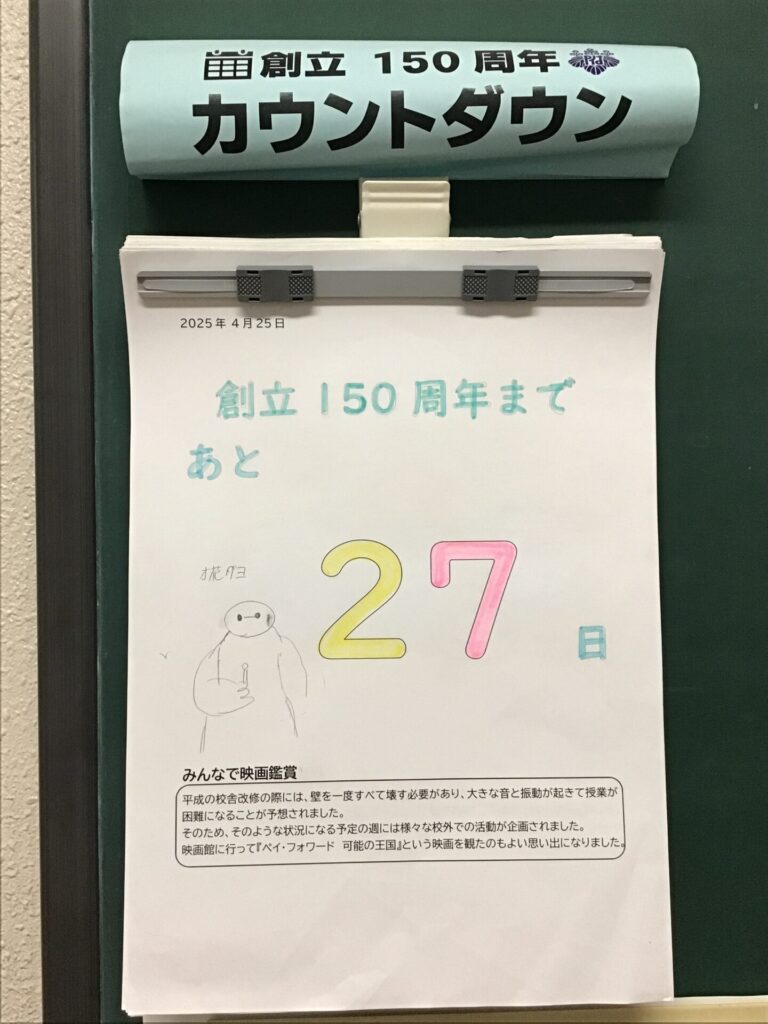 創立 150 周年
カウントダウン
2025年 4月25日
創立150周年まで
あと
27
日
みんなで映画鑑賞
平成の校舎改修の際には、壁を一度すべて壊す必要があり、大きな音と振動が起きて授業が
困難になることが予想されました。
そのため、そのような状況になる予定の週には様々な校外での活動が企画されました。
映画館に行って『ペイ・フォワード 可能の王国』という映画を観たのもよい思い出になりました。